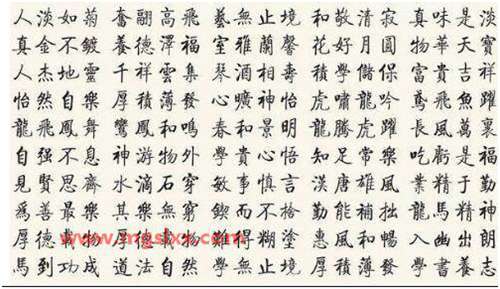 人淡如菊 奮翮高飛 藝無止境 和敬清寂 真味是淡
真金不鍍 養德澤福 室雅蘭馨 花好月圓 物華天寶
人杰地靈 千祥雲集 琴酒相壽 積學儲保 富貴吉祥
怡然自樂 厚積薄發 心曠神怡 虎嘯龍吟 鳶飛魚躍
龍飛鳳舞 鸞鳳和鳴 春和景明 龍騰虎躍 長風萬裏
自强不息 神游物外 學貴心悟 知足常樂 吃虧是福
見賢思齊 水滴石穿 敏事慎言 漢唐雄風 業精于勤
爲善最樂 其樂無窮 鍥而不捨 勤能補拙 龍馬精神
厚德載物 難得糊塗 惠風和暢 入幽出朗
馬到成功 道法自然 學無止境 厚積薄發 學書養志
www.mgslxx.com